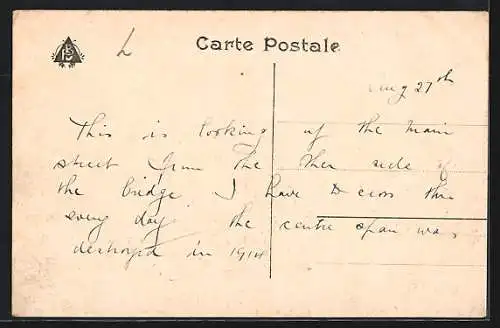 L
Carte Postale
Aug 27th
This is looking up the main
street from the other side of
the bridge I have to cross this
every day. the centre span was
destroyed in 1914